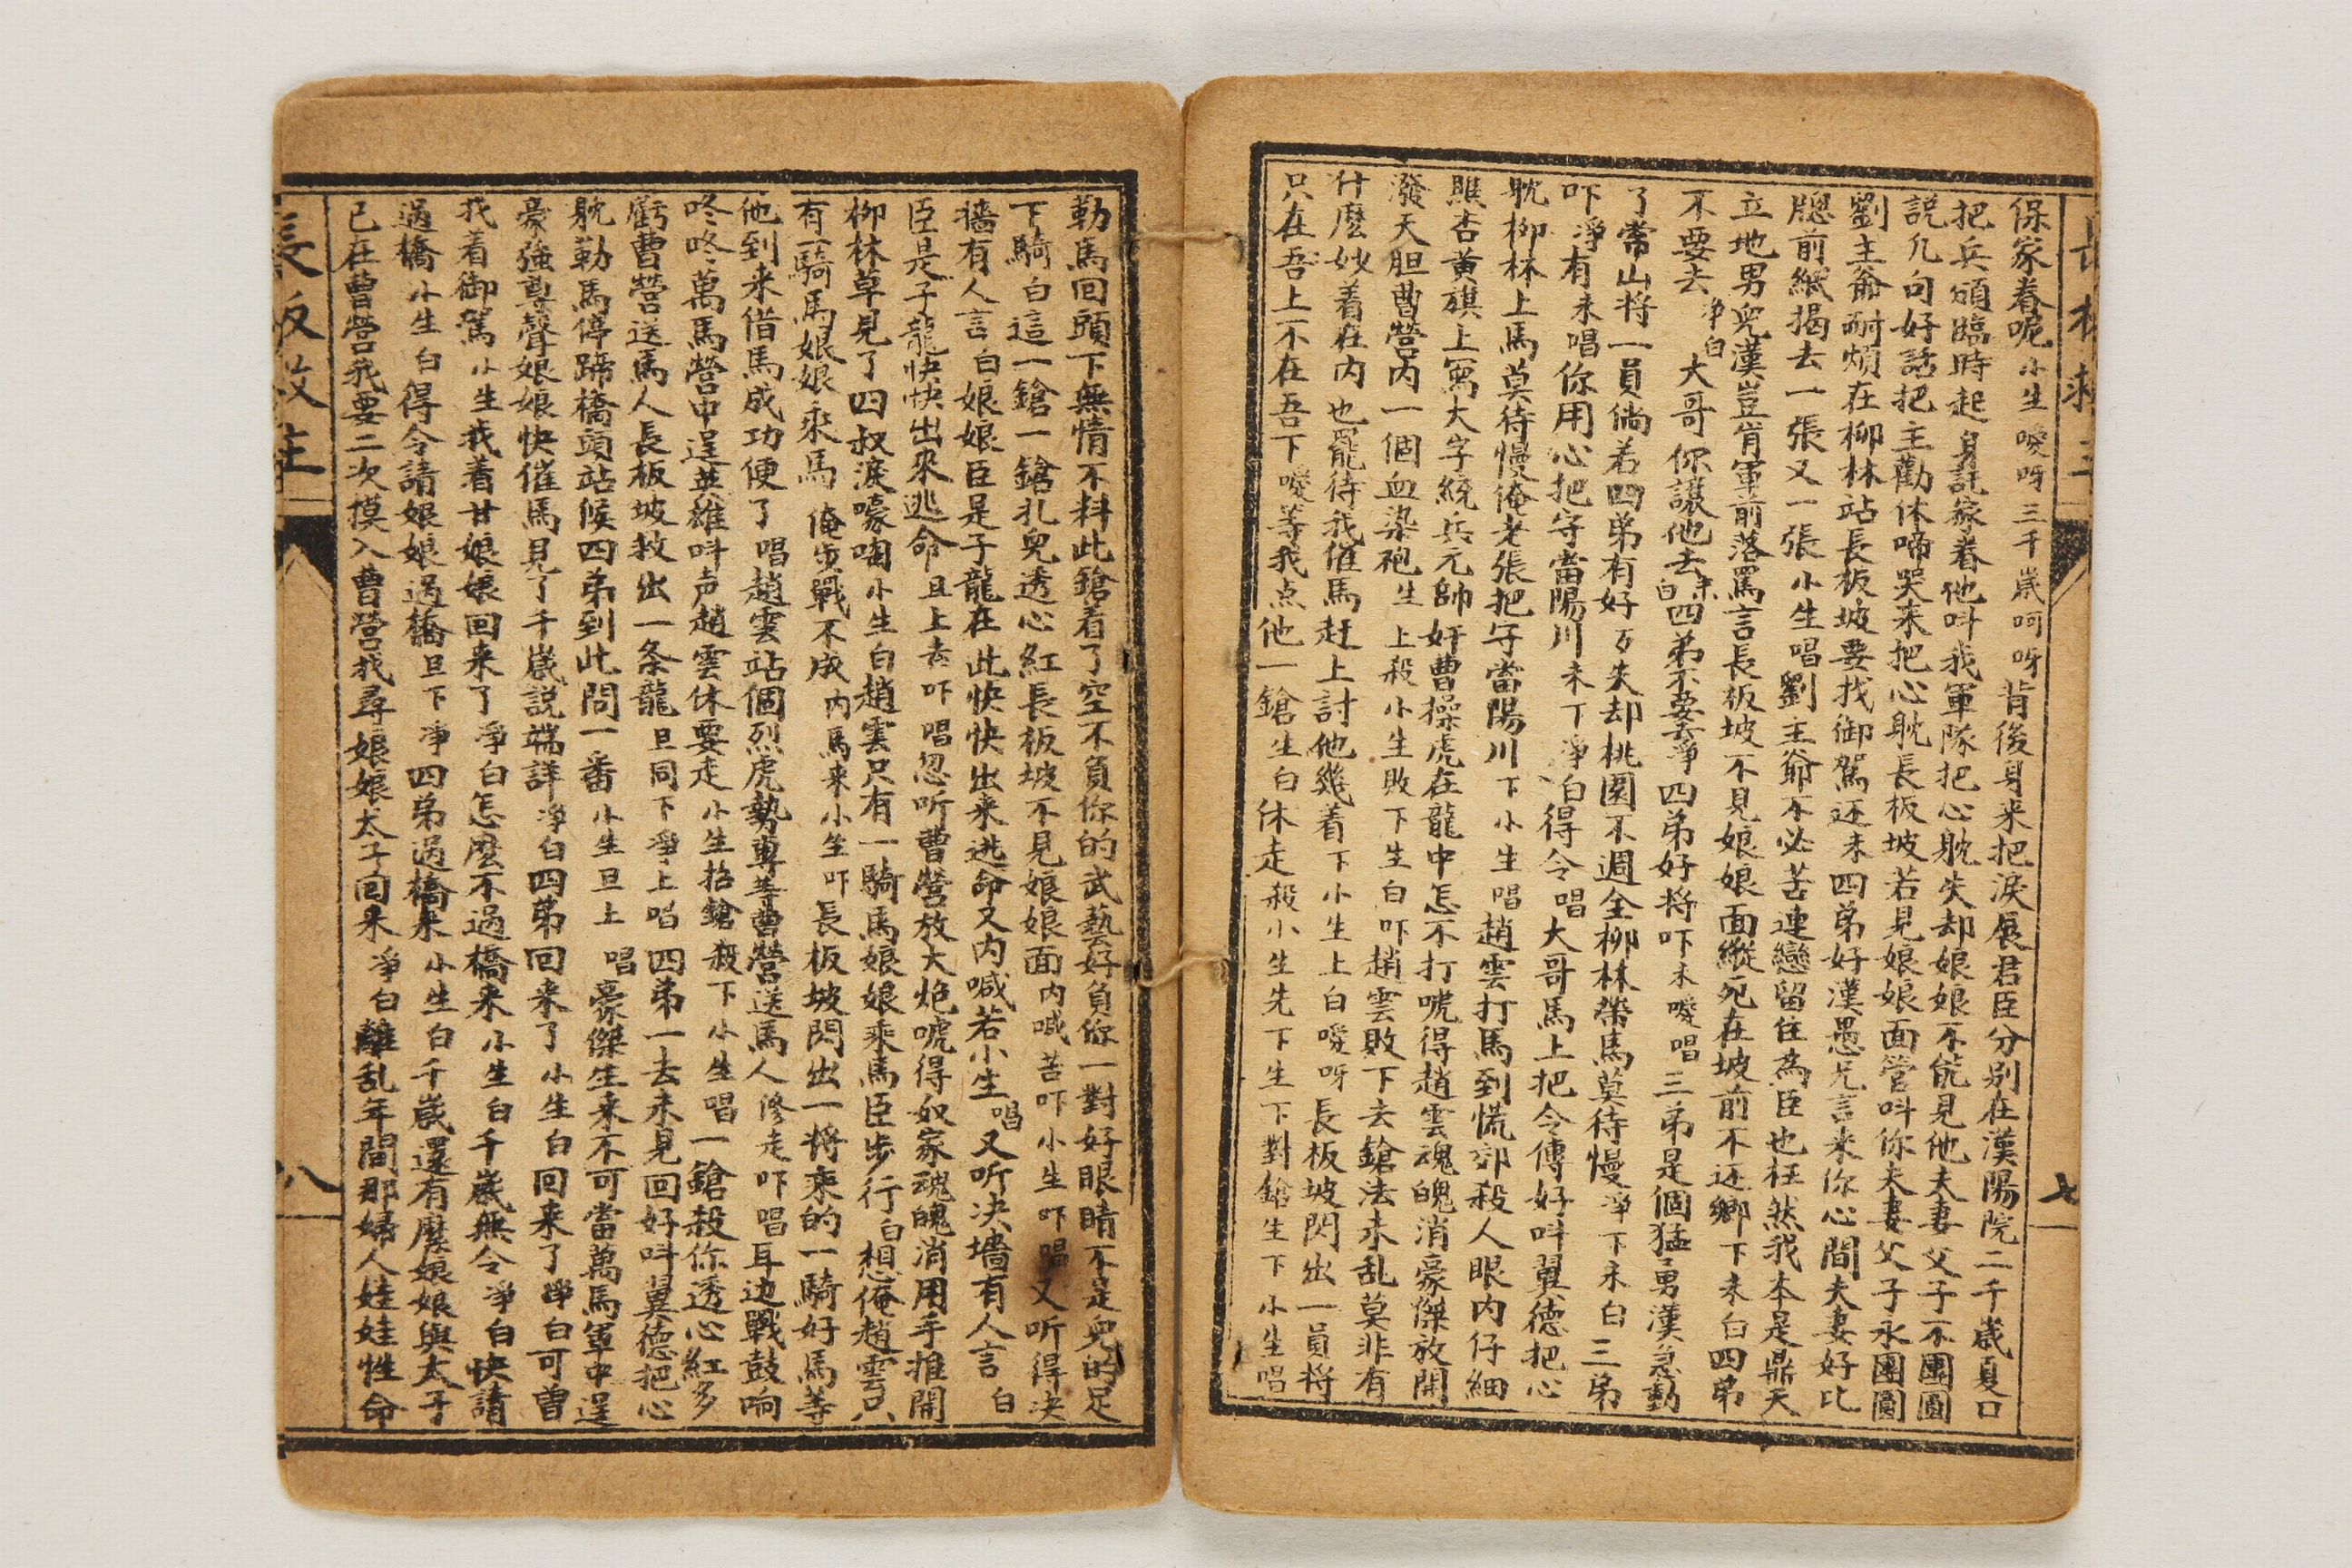 保家眷呢小生噯呀三千歲呵呀背後身来把淚展君臣分别在漢陽院二千歲夏口
把兵頒臨時起身託家眷他呌我軍隊把心躭失却娘娘不能見他夫妻父子不團圓
説几句好話把主勸休啼哭来把心躭長板坡若見娘娘面管呌你夫妻父子永團圓
劉主爺耐煩在柳林站長板坡要找御駕还末四弟好漢愚兄言来你心間夫妻好比
牕前紙揭去一張又一張小生唱劉主爺不必苦連戀留住為臣也枉然我本是鼎天
立地男兒漢豈肯軍前落罵言長板坡不見娘娘面縱死在坡前不还鄉下末白四弟
不要去净白大哥你讓他去末白四弟不要去净四弟好将吓末噯唱三弟是個猛勇漢急動
了常山将一員倘若四弟有好歹失却桃園不週全柳林帶馬莫待慢净下末白三弟
吓净有末唱你用心把守當陽川末下净白得令唱大哥馬上把令傳好呌翼德把心
躭柳林上馬莫待慢俺老張把守當陽川下小生唱趙雲打馬到慌郊殺人眼内仔細
瞧杏黄旗上寫大字統兵元帥奸曹操虎在龍中怎不打唬得趙雲魂魄消豪傑放開
潑天胆曹營内一個血染袍生上殺小生敗下生白吓趙雲敗下去鎗法未乱莫非有
什麼妙着在内也罷待我催馬赶上討他幾着下小生上白噯呀長板坡閃出一員将
只在吾上不在吾下噯等我点他一鎗生白休走殺小生先下生下對鎗生下小生唱
七
勒馬回頭下無情不料此鎗着了空不負你的武藝好負你一對好眼睛不是兒的足
下騎白這一鎗一鎗扎兒透心紅長板坡不見娘娘面内喊苦吓小生吓唱又听得决
墻有人言白娘娘臣是子龍在此快快出来逃命又内喊若小生唱又听决墻有人言白
臣是子龍快快出來逃命旦上去吓唱忽听曹營放大炮唬得奴家魂魄消用手推開
柳林草見了四叔淚嚎啕小生白趙雲只有一騎馬娘娘乘馬臣步行白想俺趙雲只
有一騎馬娘娘乘馬俺步戰不成内馬来小生吓長板坡閃出一将乘的一騎好馬等
他到来借馬成功便了唱趙雲站個烈虎勢專等曹營送馬人修走吓唱耳边戰鼓响
咚咚萬馬營中逞英雄呌声趙雲休要走小生招鎗殺下小生唱一鎗殺你透心紅多
虧曹營送馬人長板坡救出一条龍旦同下净上唱四弟一去未見回好呌翼德把心
躭勒馬停蹄橋頭站候四弟到此問一番小生旦上唱豪傑生来不可當萬馬軍中逞
豪強尊聲娘娘快催馬見了千歲説端詳净白四弟回来了小生白回来了净白可曾
找着御駕小生我着甘娘娘回来了净白怎麼不過橋来小生白千歲無令净白快請
過橋小生白得令請娘娘過橋旦下净四弟過橋来小生白千歲還有糜娘娘與太子
已在曹營我要二次摸入曹營找尋娘娘太子回来净白離乱年間那婦人娃娃性命
長板救主
八